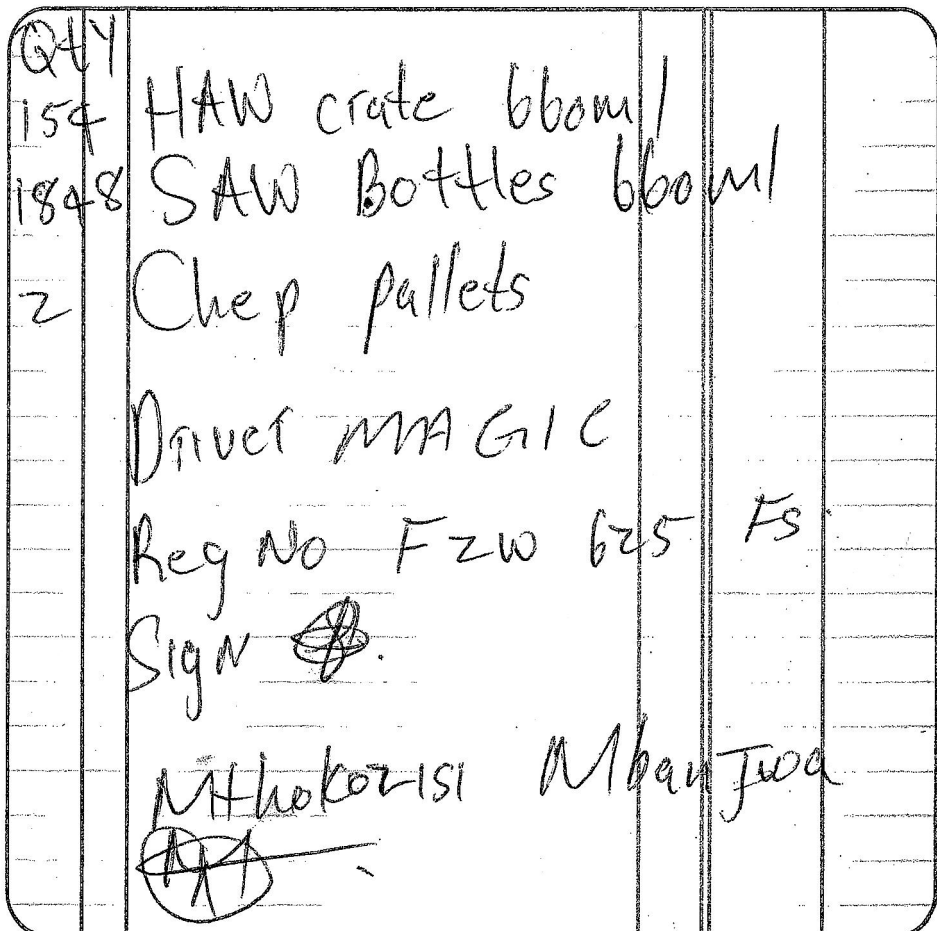 Qty
154 HAW crate 660ml
1848 SAW Bottles 660ml
2 Chep pallets
Driver MAGIC
Reg No FZW 625 FS.
Sign
Mthokozisi Mbanjwa